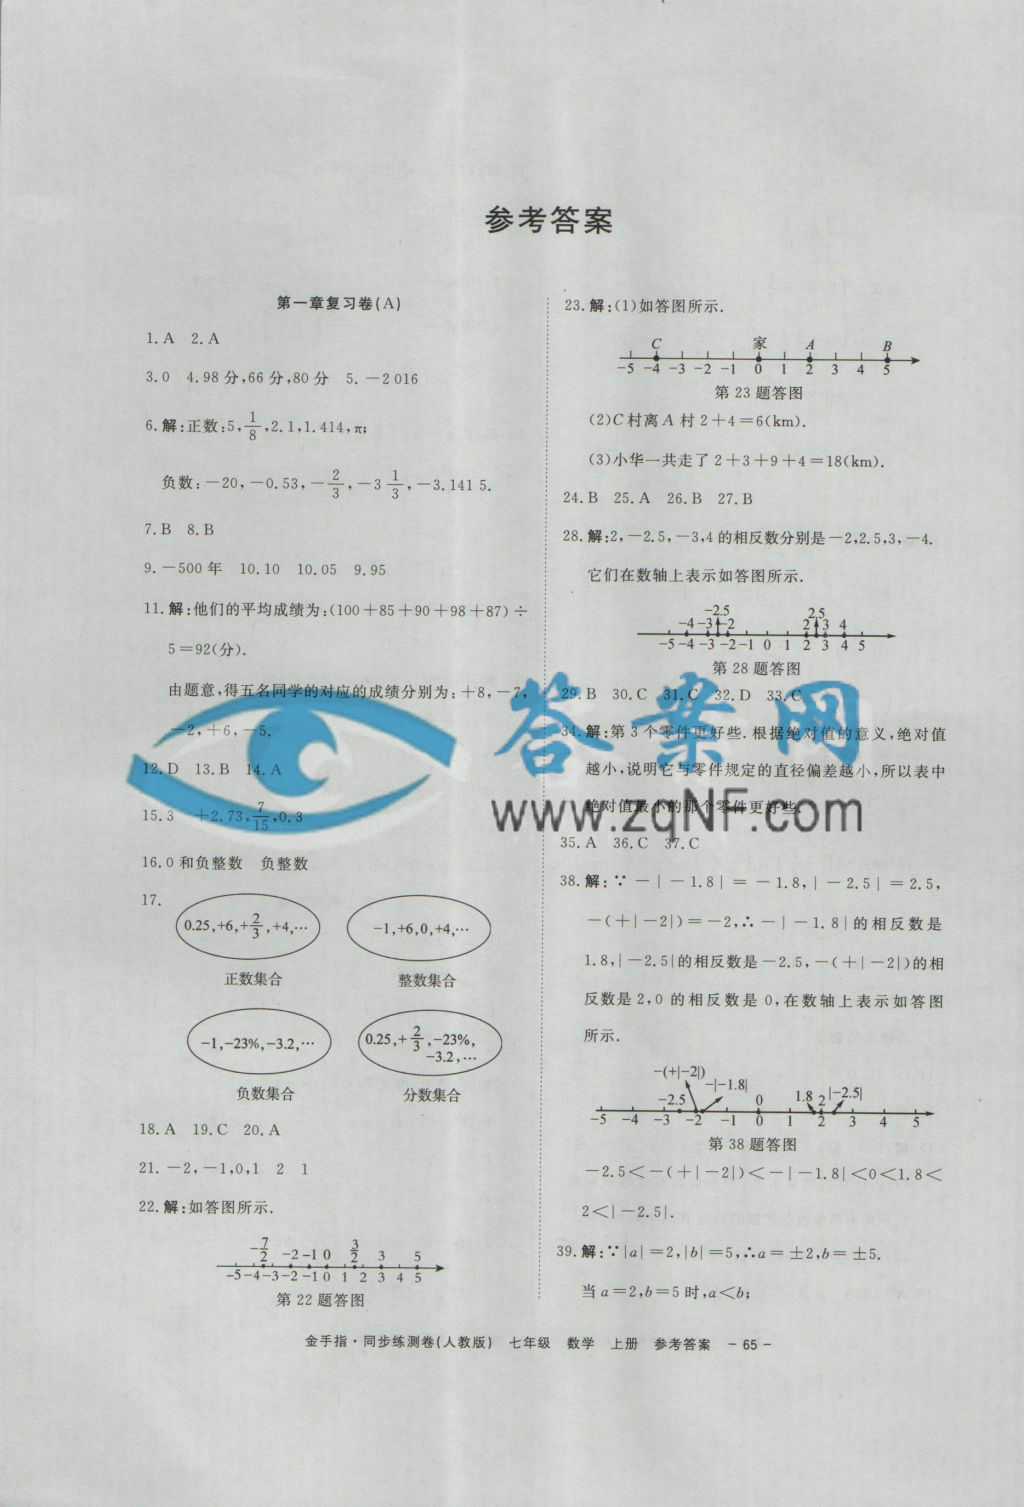 参考答案
第一章复习卷(A)
1.A 2.A
3.0 4.98分,66分,80分 5.－2 016
6.解:正数:5,1/8,2.1,1.414,π;
负数:－20,－0.53,－2/3,－3 1/3,－3.141 5.
7.B 8.B
9.－500年 10.10 10.05 9.95
11.解:他们的平均成绩为:(100＋85＋90＋98＋87)÷
5＝92(分).
由题意,得五名同学的对应的成绩分别为:＋8,－7,
－2,＋6,－5.
12.D 13.B 14.A
15.3 ＋2.73,7/15,0.3
16.0和负整数 负整数
17.
0.25,+6,+2/3,+4,…
－1,+6,0,+4,…
正数集合 整数集合
－1,－23%,－3.2,…
0.25,+2/3,－23%,
－3.2,…
负数集合 分数集合
18.A 19.C 20.A
21.－2,－1,0,1 2 1
22.解:如答图所示.
－7/2 －2 －1 0 3/2 3 5
－5 －4 －3 －2 －1 0 1 2 3 4 5
第22题答图
23.解:(1)如答图所示.
C 家 A B
－5 －4 －3 －2 －1 0 1 2 3 4 5
第23题答图
(2)C村离A村2＋4＝6(km).
(3)小华一共走了2＋3＋9＋4＝18(km).
24.B 25.A 26.B 27.B
28.解:2,－2.5,－3,4的相反数分别是－2,2.5,3,－4.
它们在数轴上表示如答图所示.
－2.5 2.5
－4 －3 －2 2 3 4
－5 －4 －3 －2 －1 0 1 2 3 4 5
第28题答图
29.B 30.C 31.C 32.D 33.C
34.解:第3个零件更好些.根据绝对值的意义,绝对值
越小,说明它与零件规定的直径偏差越小,所以表中
绝对值最小的那个零件更好些.
35.A 36.C 37.C
38.解:∵－|－1.8|＝－1.8,|－2.5|＝2.5,
－(＋|－2|)＝－2,∴－|－1.8|的相反数是
1.8,|－2.5|的相反数是－2.5,－(＋|－2|)的相
反数是2,0的相反数是0,在数轴上表示如答图
所示.
－(+|－2|)
－|－1.8|
－2.5 0 1.8 2 |－2.5|
－5 －4 －3 －2 －1 0 1 2 3 4 5
第38题答图
－2.5＜－(＋|－2|)＜－|－1.8|＜0＜1.8＜
2＜|－2.5|.
39.解:∵|a|＝2,|b|＝5,∴a＝±2,b＝±5.
当a＝2,b＝5时,a＜b;
答案网
www.zqNF.com
金手指·同步练测卷(人教版) 七年级 数学 上册 参考答案 －65－